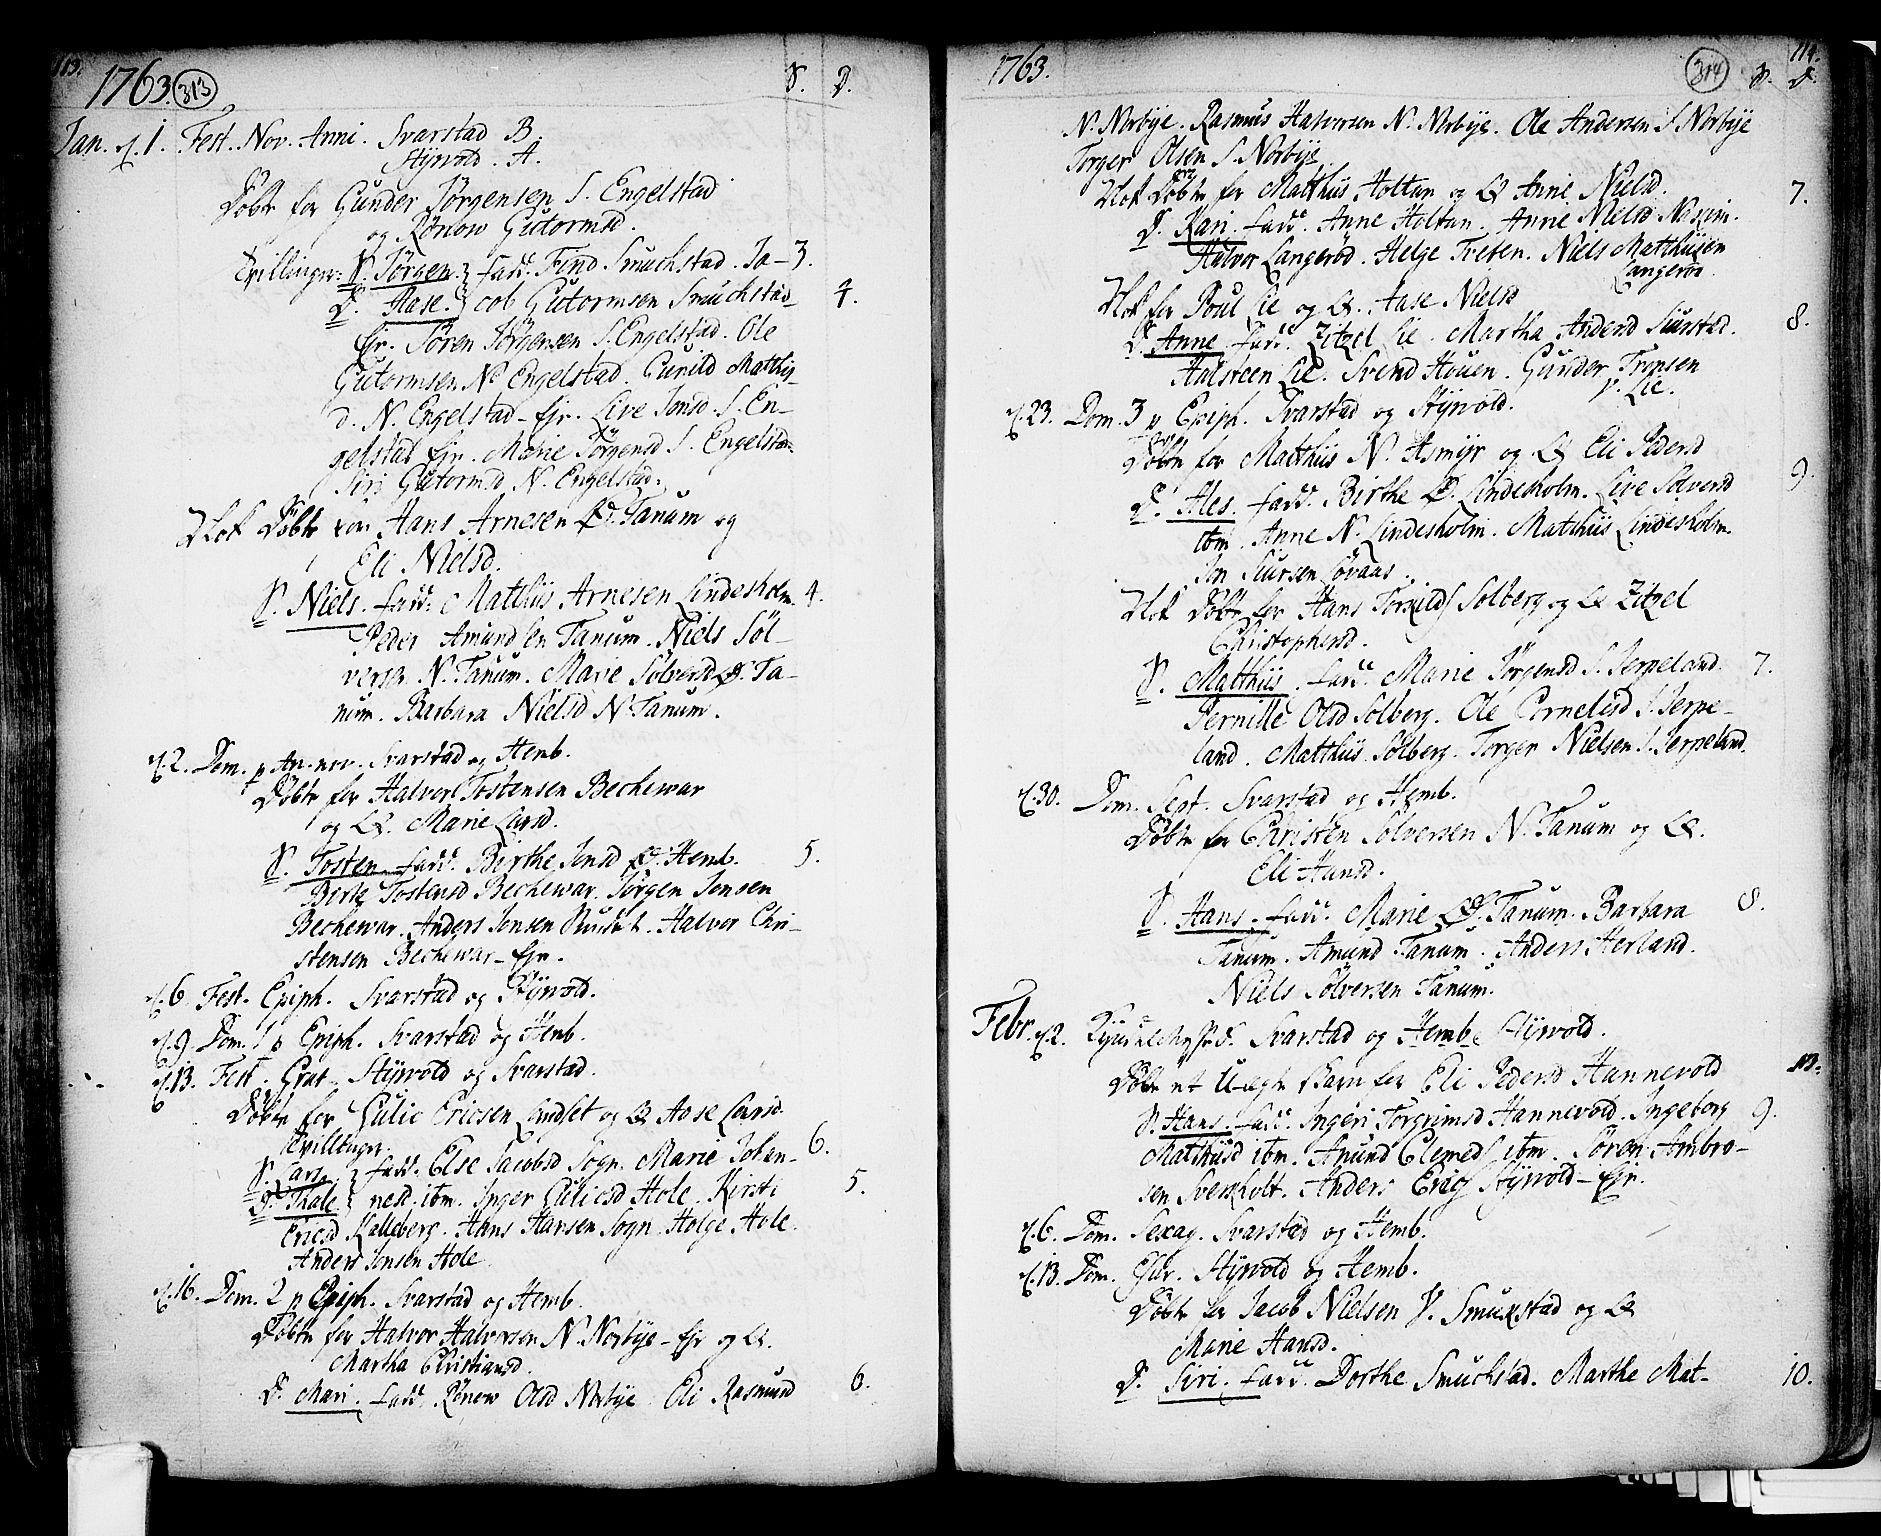 113.
1763. 313
S. D.
Jan. d. 1. Fest. Nov. Anni. Svarstad B.
Styrvold. A.
Døbt for Gunder Jørgensen S. Engelstad
og Rønow Gutormsd.
Tvillinger: S. Jørgen. Fadd. Find Smuchstad. Ja- 3.
D. Aase. cob Gutormsen Smuchstad 4.
Ejr. Søren Jørgensen S. Engelstad. Ole
Gutormsen N. Engelstad. Gunild Matthis-
d. N. Engelstad - Ejr. Live Jonsd. S. En-
gelstat Ejr. Marie Jørgensd S. Engelstad
Siri Gutormsd N. Engelstad.
Nok Døbt for Hans Arnesen Ø. Tanum og
Eli Nielsd.
S. Niels. Fadd: Matthis Arnesen Lindesholm. 4.
Peder Amundsen Tanum. Niels Søl-
versen N. Tanum. Marie Sølversd Ø. Ta-
num. Barbara Nielsd N. Tanum.
d. 2. Dom. p An. nov. Svarstad og Hemb.
Døbt for Halvor Tostensen Bechewar
og Q. Marie Larsd.
S. Tosten Fadd. Birthe Jonsd Ø. Hemb. 5.
Berte Tostensd Bechewar. Jørgen Jonsen
Bechewar. Anders Jonsen. Halvor Chri-
stensen Bechewar - Ejr.
d. 6. Fest. Epiph. Svarstad og Styrvold.
d. 9. Dom. 1 p Epiph. Svarstad og Hemb.
d. 13. Fest. Grat. Styrvold og Svarstad.
Døbt for Gulic Ericsen Landset og Q Aase Larsd.
Tvillinger.
S. Lars. Fadd. Else Jacobsd Sogn. Marie Johan- 6.
D. Thale. nesd. ibm. Inger Gulicsd Hole. Kirsti 5.
Ericsd Kalleberg. Hans Hansen Sogn. Helge Hole.
Anders Jonsen Hole.
d. 16. Dom. 2 p Epiph. Svarstad og Hemb.
Døbt for Halvor Halvorsen N. Norbye - Ejr og Q.
Martha Christiansd.
D. Mari. Fadd. Rønow Olsd Norbye. Eli Rasmusd 6.
1763.
314
114.
S. D.
N. Norbye. Rasmus Halvorsen N. Norbye. Ole Andersen S. Norbye
Torger Olsen S. Norbye.
Nok Døbt for Matthis Holtan og Q Anne Nielsd. 7.
D. Kari. Fadd. Anne Holtan. Anne Nielsd.
Halvor Langerød. Helge Treten. Niels Matthisen
Langerød.
Nok for Poul Lie og Q. Aase Nielsd 8.
D. Anne Fadd. Zitzel Lie. Martha Andersd Siurstad.
Halsteen Lie. Svend Houen. Gunder Tronsen
V. Lie.
d. 23. Dom. 3 p Epiph. Svarstad og Styrvold.
Døbt for Matthis N. Asmyr og Q Eli Pedersd
D. Ales. Fadd. Birthe Ø. Lindesholm. Live Sølversd 9.
ibm. Anne N. Lindesholm. Matthis Lindesholm.
Jon Siursen Løvaas.
Nok Døbt for Hans Torkilds Solberg og Q Zitzel
Christophersd.
S. Matthis. Fadd. Marie Jørgensd S. Jerpeland. 7.
Pernille Olsd Solberg. Ole Cornelisd S. Jerpe-
land. Matthis Solberg. Torger Nielsen S. Jerpeland.
d. 30. Dom. Sept. Svarstad og Hemb.
Døbt for Christen Sølversen N. Tanum og Q.
Eli Hansd.
S. Hans. Fadd. Marie Ø. Tanum. Barbara 8.
Tanum. Amund Tanum. Anders Herland.
Niels Sølversen Tanum.
Febr. d. 2. Kyndelmysse d. Svarstad og Hemb. Styrvold.
Døbt et U-ægte Barn for Eli Pedersd Hannevold
S. Hans. Fadd. Ingeri Torgrimsd Hannevold. Ingeborg 9.
Matthisd ibm. Amund Clemeds ibm. Søren Ambro-
sen Sverkholt. Anders Erics Styrvold - Ejr.
d. 6. Dom. Sexag. Svarstad og Hemb.
d. 13. Dom. Esur. Styrvold og Hemb.
Døbt for Jacob Nielsen V. Smukstad og Q
Marie Hansd.
D. Siri. Fadd. Dorthe Smuchstad. Marthe Mat- 10.